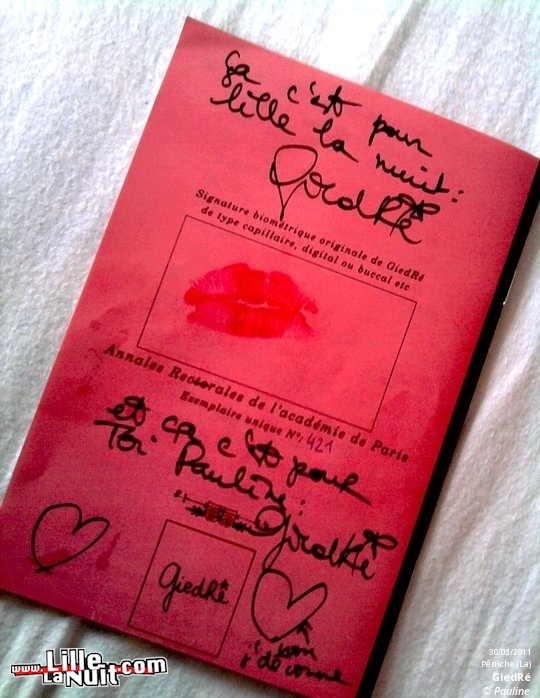 ça c'est pour
lille la nuit :
GiedRé
Signature biométrique originale de GiedRé
de type capillaire, digital ou buccal etc
Annales Rectorales de l'académie de Paris
Exemplaire unique N°: 421
et ça c'est pour
Toi Pauline :
GiedRé
GiedRé
j'
www.Lille
LaNuit.com
30/03/2011
Péniche (La)
GiedRé
© Pauline